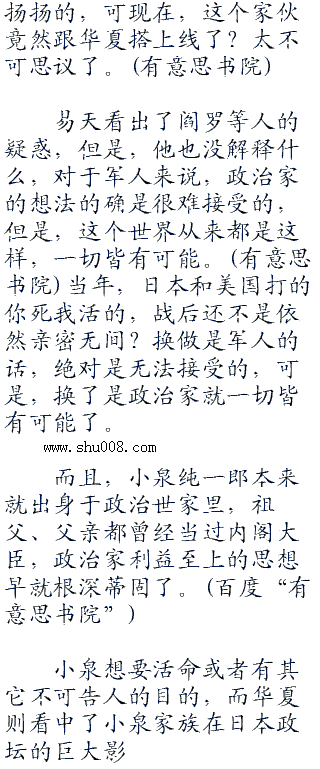 扬扬的，可现在，这个家伙
竟然跟华夏搭上线了？太不
可思议了。(有意思书院)
易天看出了阎罗等人的
疑惑，但是，他也没解释什
么，对于军人来说，政治家
的想法的确是很难接受的，
但是，这个世界从来都是这
样，一切皆有可能。(有意思
书院)当年，日本和美国打的
你死我活的，战后还不是依
然亲密无间？换做是军人的
话，绝对是无法接受的，可
是，换了是政治家就一切皆
有可能了。
www.shu008.com
而且，小泉纯一郎本来
就出身于政治世家里，祖
父、父亲都曾经当过内阁大
臣，政治家利益至上的思想
早就根深蒂固了。(百度“有
意思书院”)
小泉想要活命或者有其
它不可告人的目的，而华夏
则看中了小泉家族在日本政
坛的巨大影